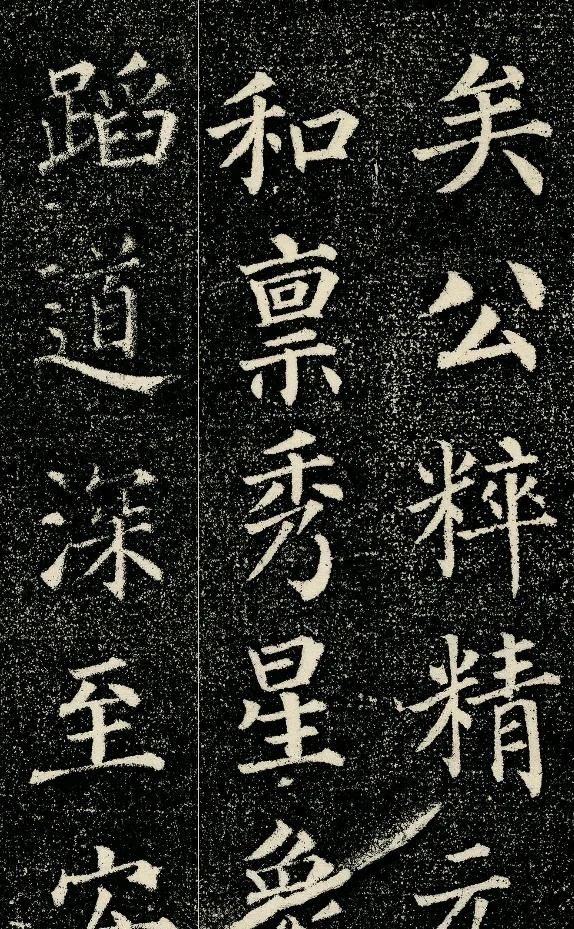 矣公粹精元
和禀秀星象
蹈道深至